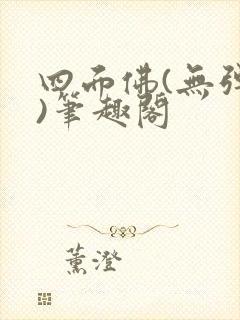 四而佛(無彈
)筆趣閣
薰澄